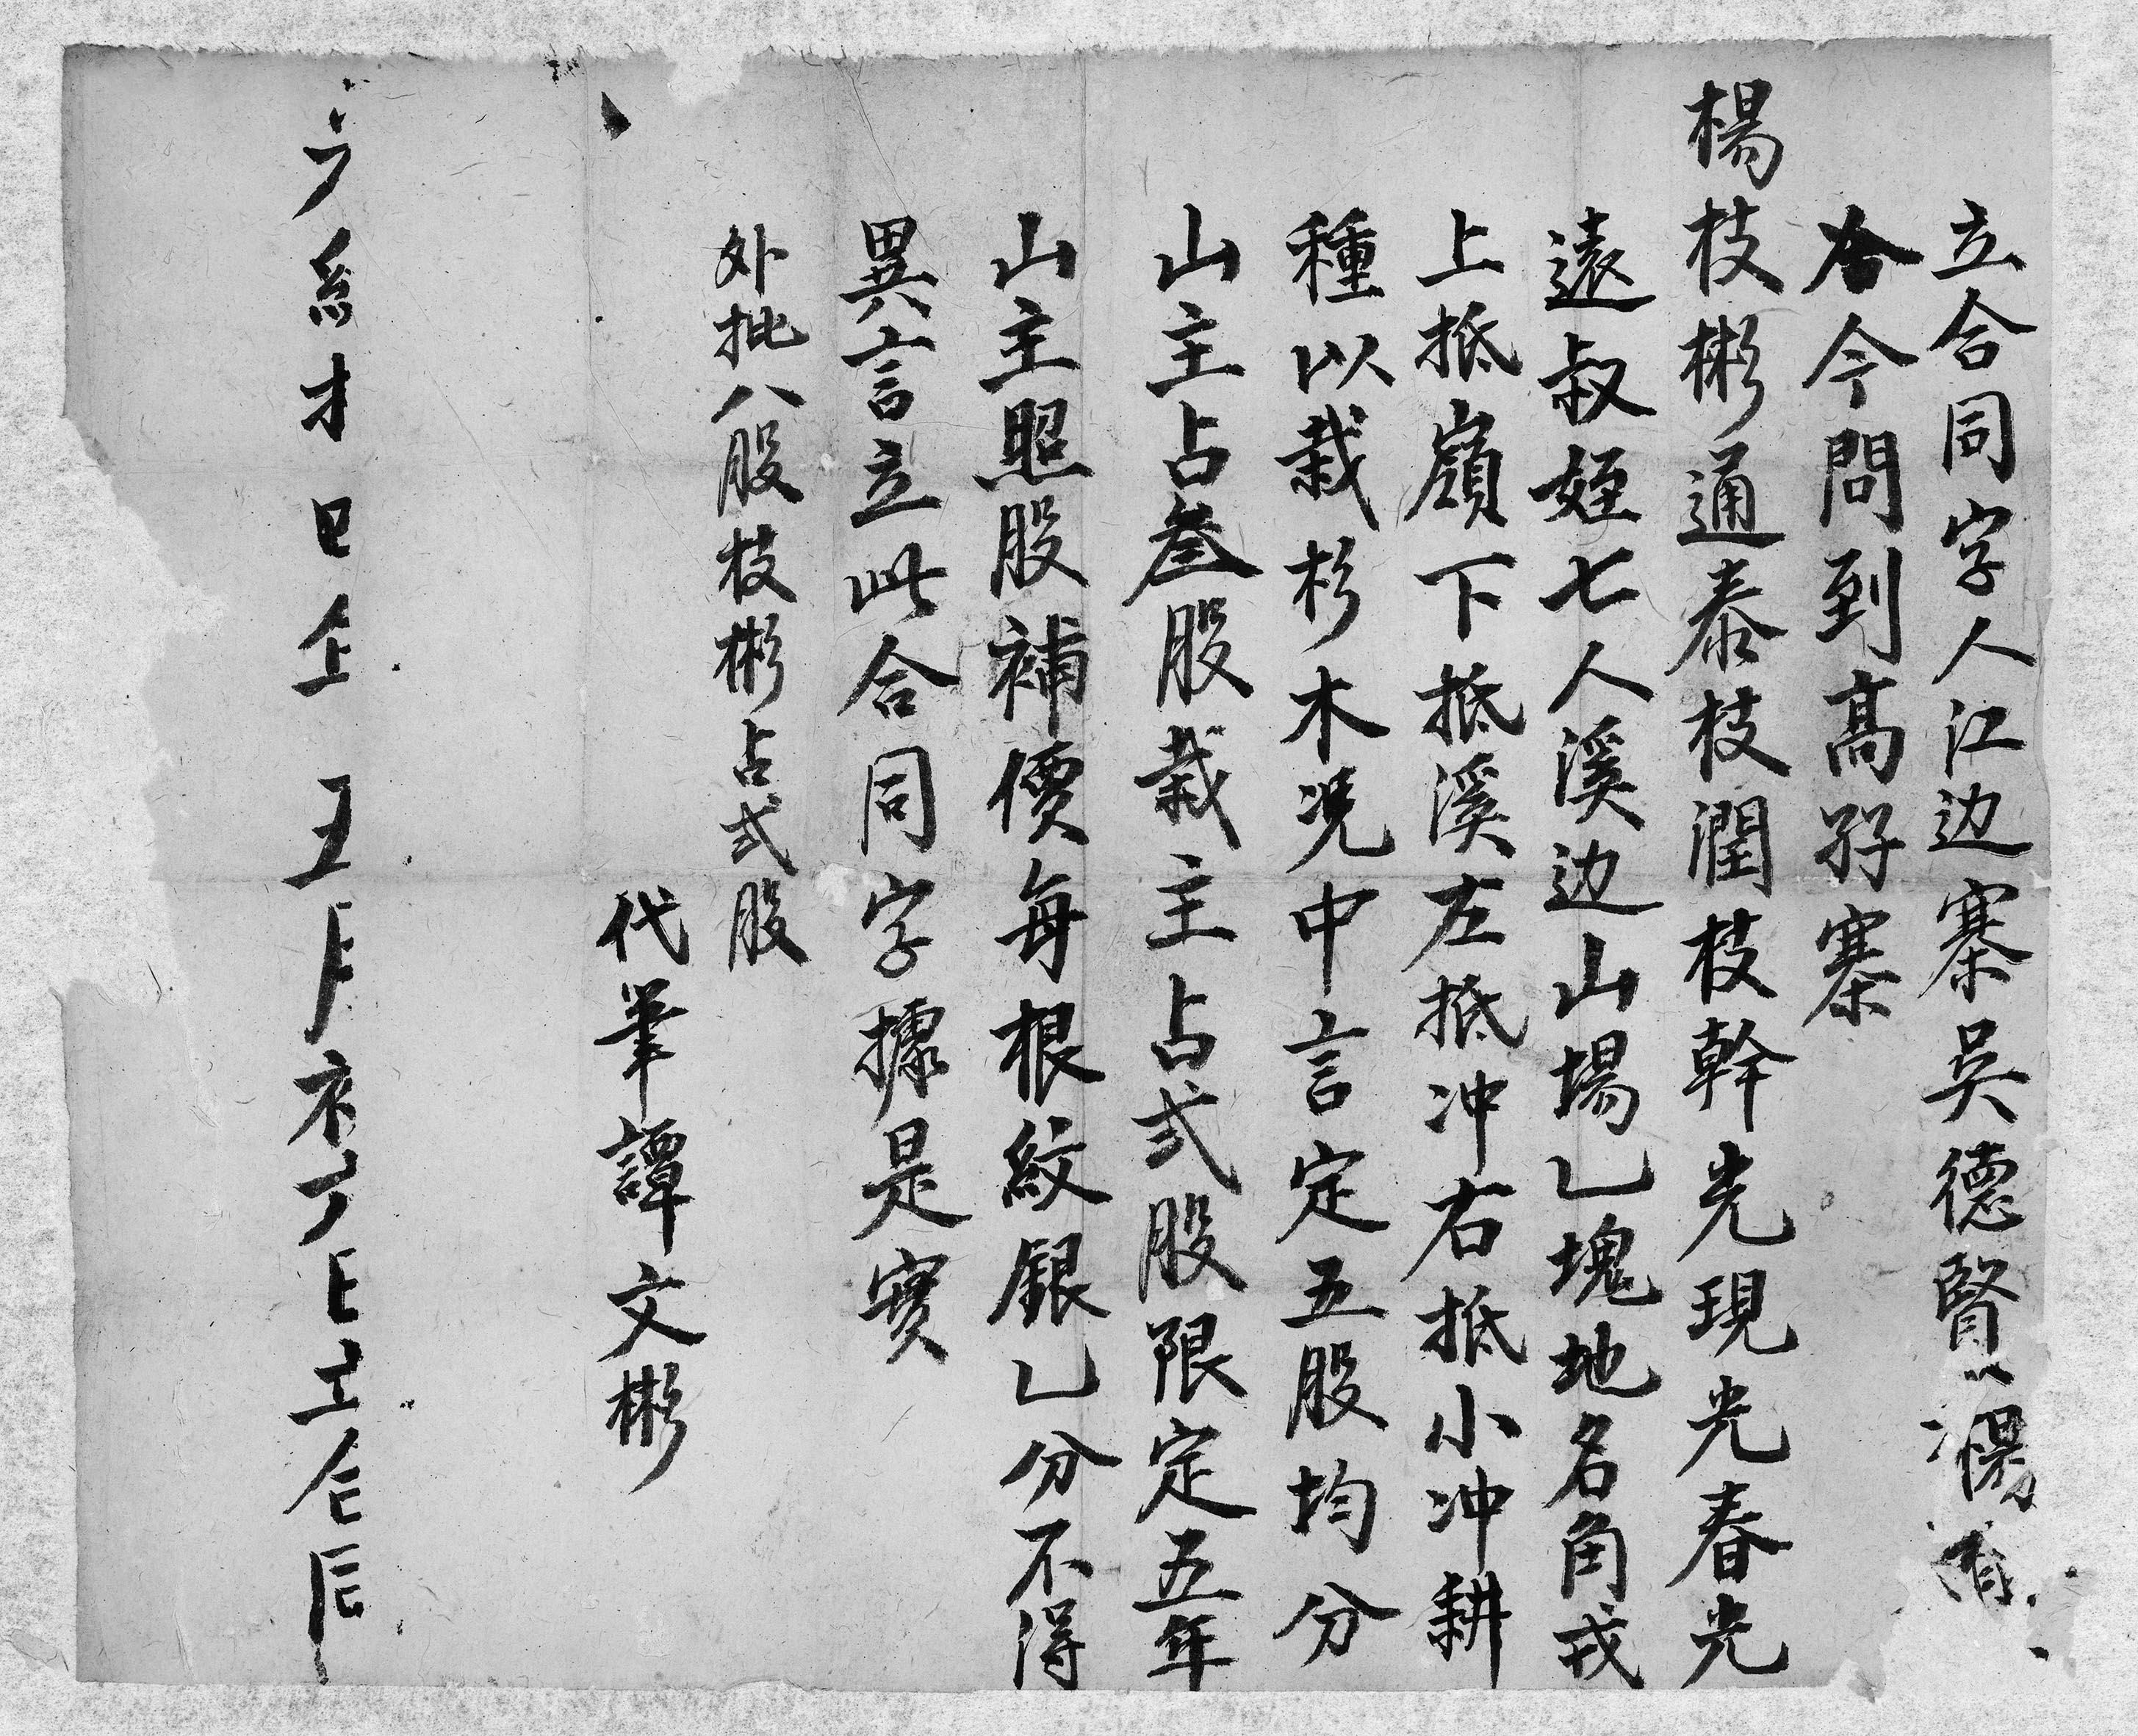 立合同字人江边寨吳德賢湯有
合今問到高孖寨
楊枝彬通泰枝潤枝幹光現光春光
遠叔姪七人溪边山場乙塊地名角戎
上抵嶺下抵溪左抵冲右抵小冲耕
種以栽杉木凭中言定五股均分
山主占叁股栽主占弍股限定五年
山主照股補價每根紋銀乙分不得
異言立此合同字據是實
外批八股枝彬占弍股
代筆譚文彬